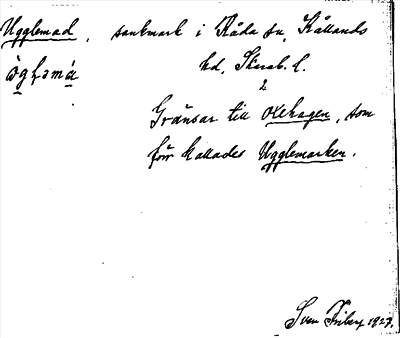 Ugglemad, sankmark i Råda sn, Kållands
hd, Skarab. l.
ò̤gləmá̤
2
Gränsar till Oxhagen, som
förr kallades Ugglemarken.
Sven Friberg 1927.